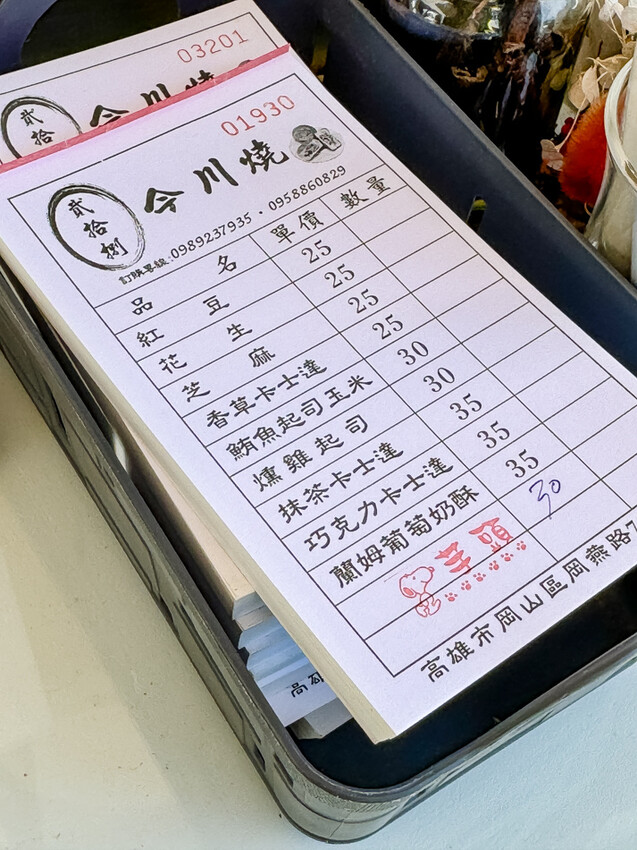 03201
貳拾
今川燒
01930
貳拾捌
今川燒
訂購專線:0989237935・0958860829
品名 單價 數量
紅豆 25
花生 25
芝麻 25
香草卡士達 25
鮪魚起司玉米 30
燻雞起司 30
抹茶卡士達 35
巧克力卡士達 35
蘭姆葡萄奶酥 35
芋頭 30
高雄市岡山區岡燕路
高雄